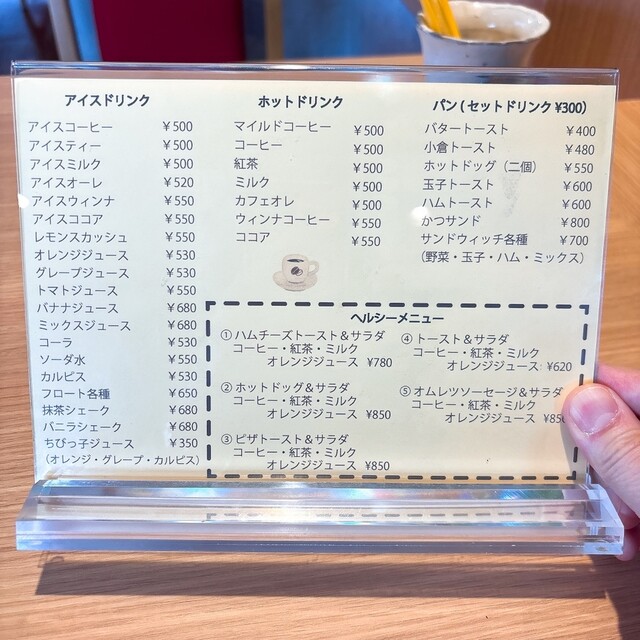 アイスドリンク
アイスコーヒー ¥500
アイスティー ¥500
アイスミルク ¥500
アイスオーレ ¥520
アイスウィンナ ¥550
アイスココア ¥550
レモンスカッシュ ¥550
オレンジジュース ¥530
グレープジュース ¥530
トマトジュース ¥550
バナナジュース ¥680
ミックスジュース ¥680
コーラ ¥530
ソーダ水 ¥550
カルピス ¥530
フロート各種 ¥650
抹茶シェーク ¥680
バニラシェーク ¥680
ちびっ子ジュース ¥350
(オレンジ・グレープ・カルピス)
ホットドリンク
マイルドコーヒー ¥500
コーヒー ¥500
紅茶 ¥500
ミルク ¥500
カフェオレ ¥500
ウィンナコーヒー ¥550
ココア ¥550
パン(セットドリンク¥300)
バタートースト ¥400
小倉トースト ¥480
ホットドッグ(二個) ¥550
玉子トースト ¥600
ハムトースト ¥600
かつサンド ¥800
サンドウィッチ各種 ¥700
(野菜・玉子・ハム・ミックス)
ヘルシーメニュー
① ハムチーズトースト&サラダ
コーヒー・紅茶・ミルク
オレンジジュース ¥780
② ホットドッグ&サラダ
コーヒー・紅茶・ミルク
オレンジジュース ¥850
③ ピザトースト&サラダ
コーヒー・紅茶・ミルク
オレンジジュース ¥850
④ トースト&サラダ
コーヒー・紅茶・ミルク
オレンジジュース ¥620
⑤ オムレツソーセージ&サラダ
コーヒー・紅茶・ミルク
オレンジジュース ¥850